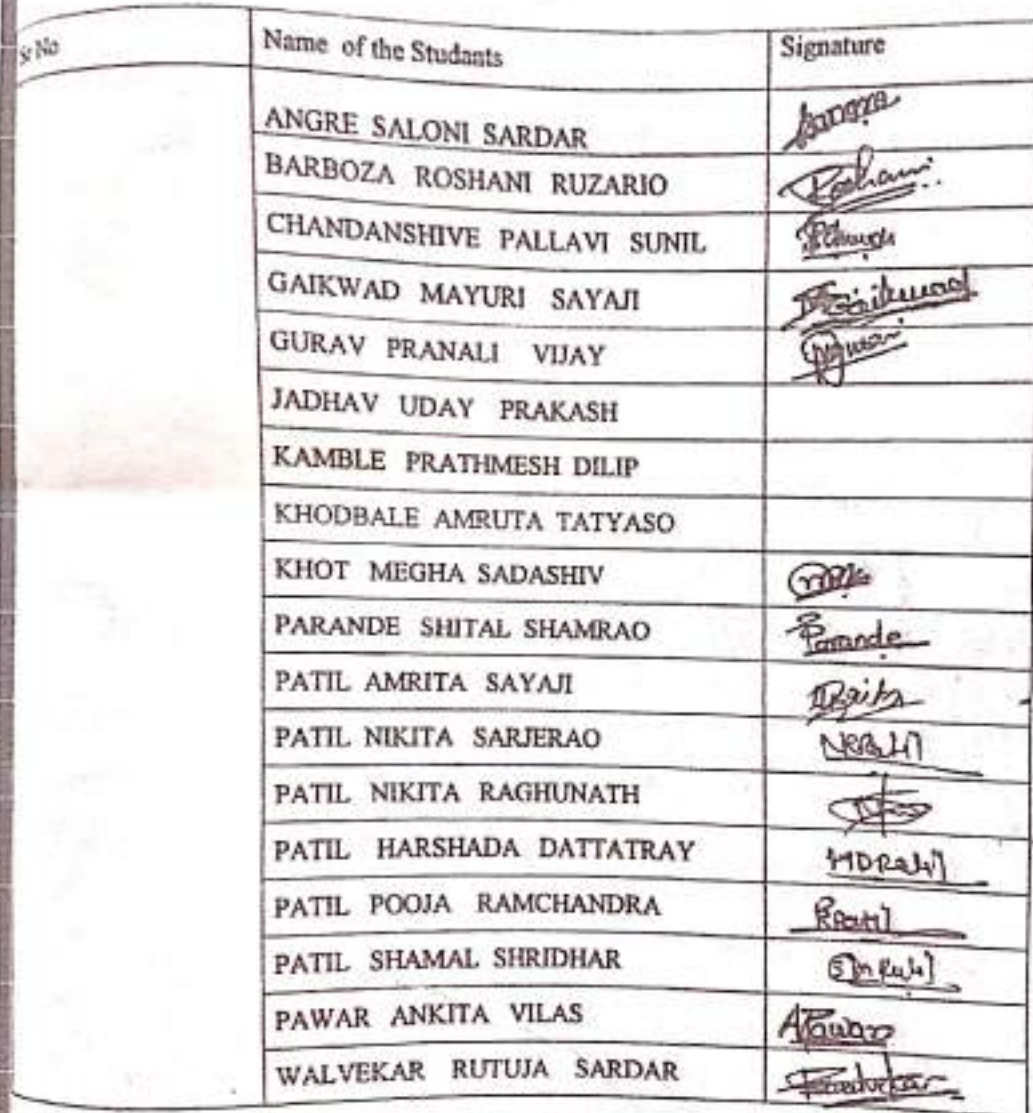 Sr No Name of the Studants Signature
ANGRE SALONI SARDAR
BARBOZA ROSHANI RUZARIO Roshani
CHANDANSHIVE PALLAVI SUNIL
GAIKWAD MAYURI SAYAJI Gaikwad
GURAV PRANALI VIJAY
JADHAV UDAY PRAKASH
KAMBLE PRATHMESH DILIP
KHODBALE AMRUTA TATYASO
KHOT MEGHA SADASHIV
PARANDE SHITAL SHAMRAO Parande
PATIL AMRITA SAYAJI
PATIL NIKITA SARJERAO
PATIL NIKITA RAGHUNATH
PATIL HARSHADA DATTATRAY HDPatil
PATIL POOJA RAMCHANDRA
PATIL SHAMAL SHRIDHAR
PAWAR ANKITA VILAS APawar
WALVEKAR RUTUJA SARDAR